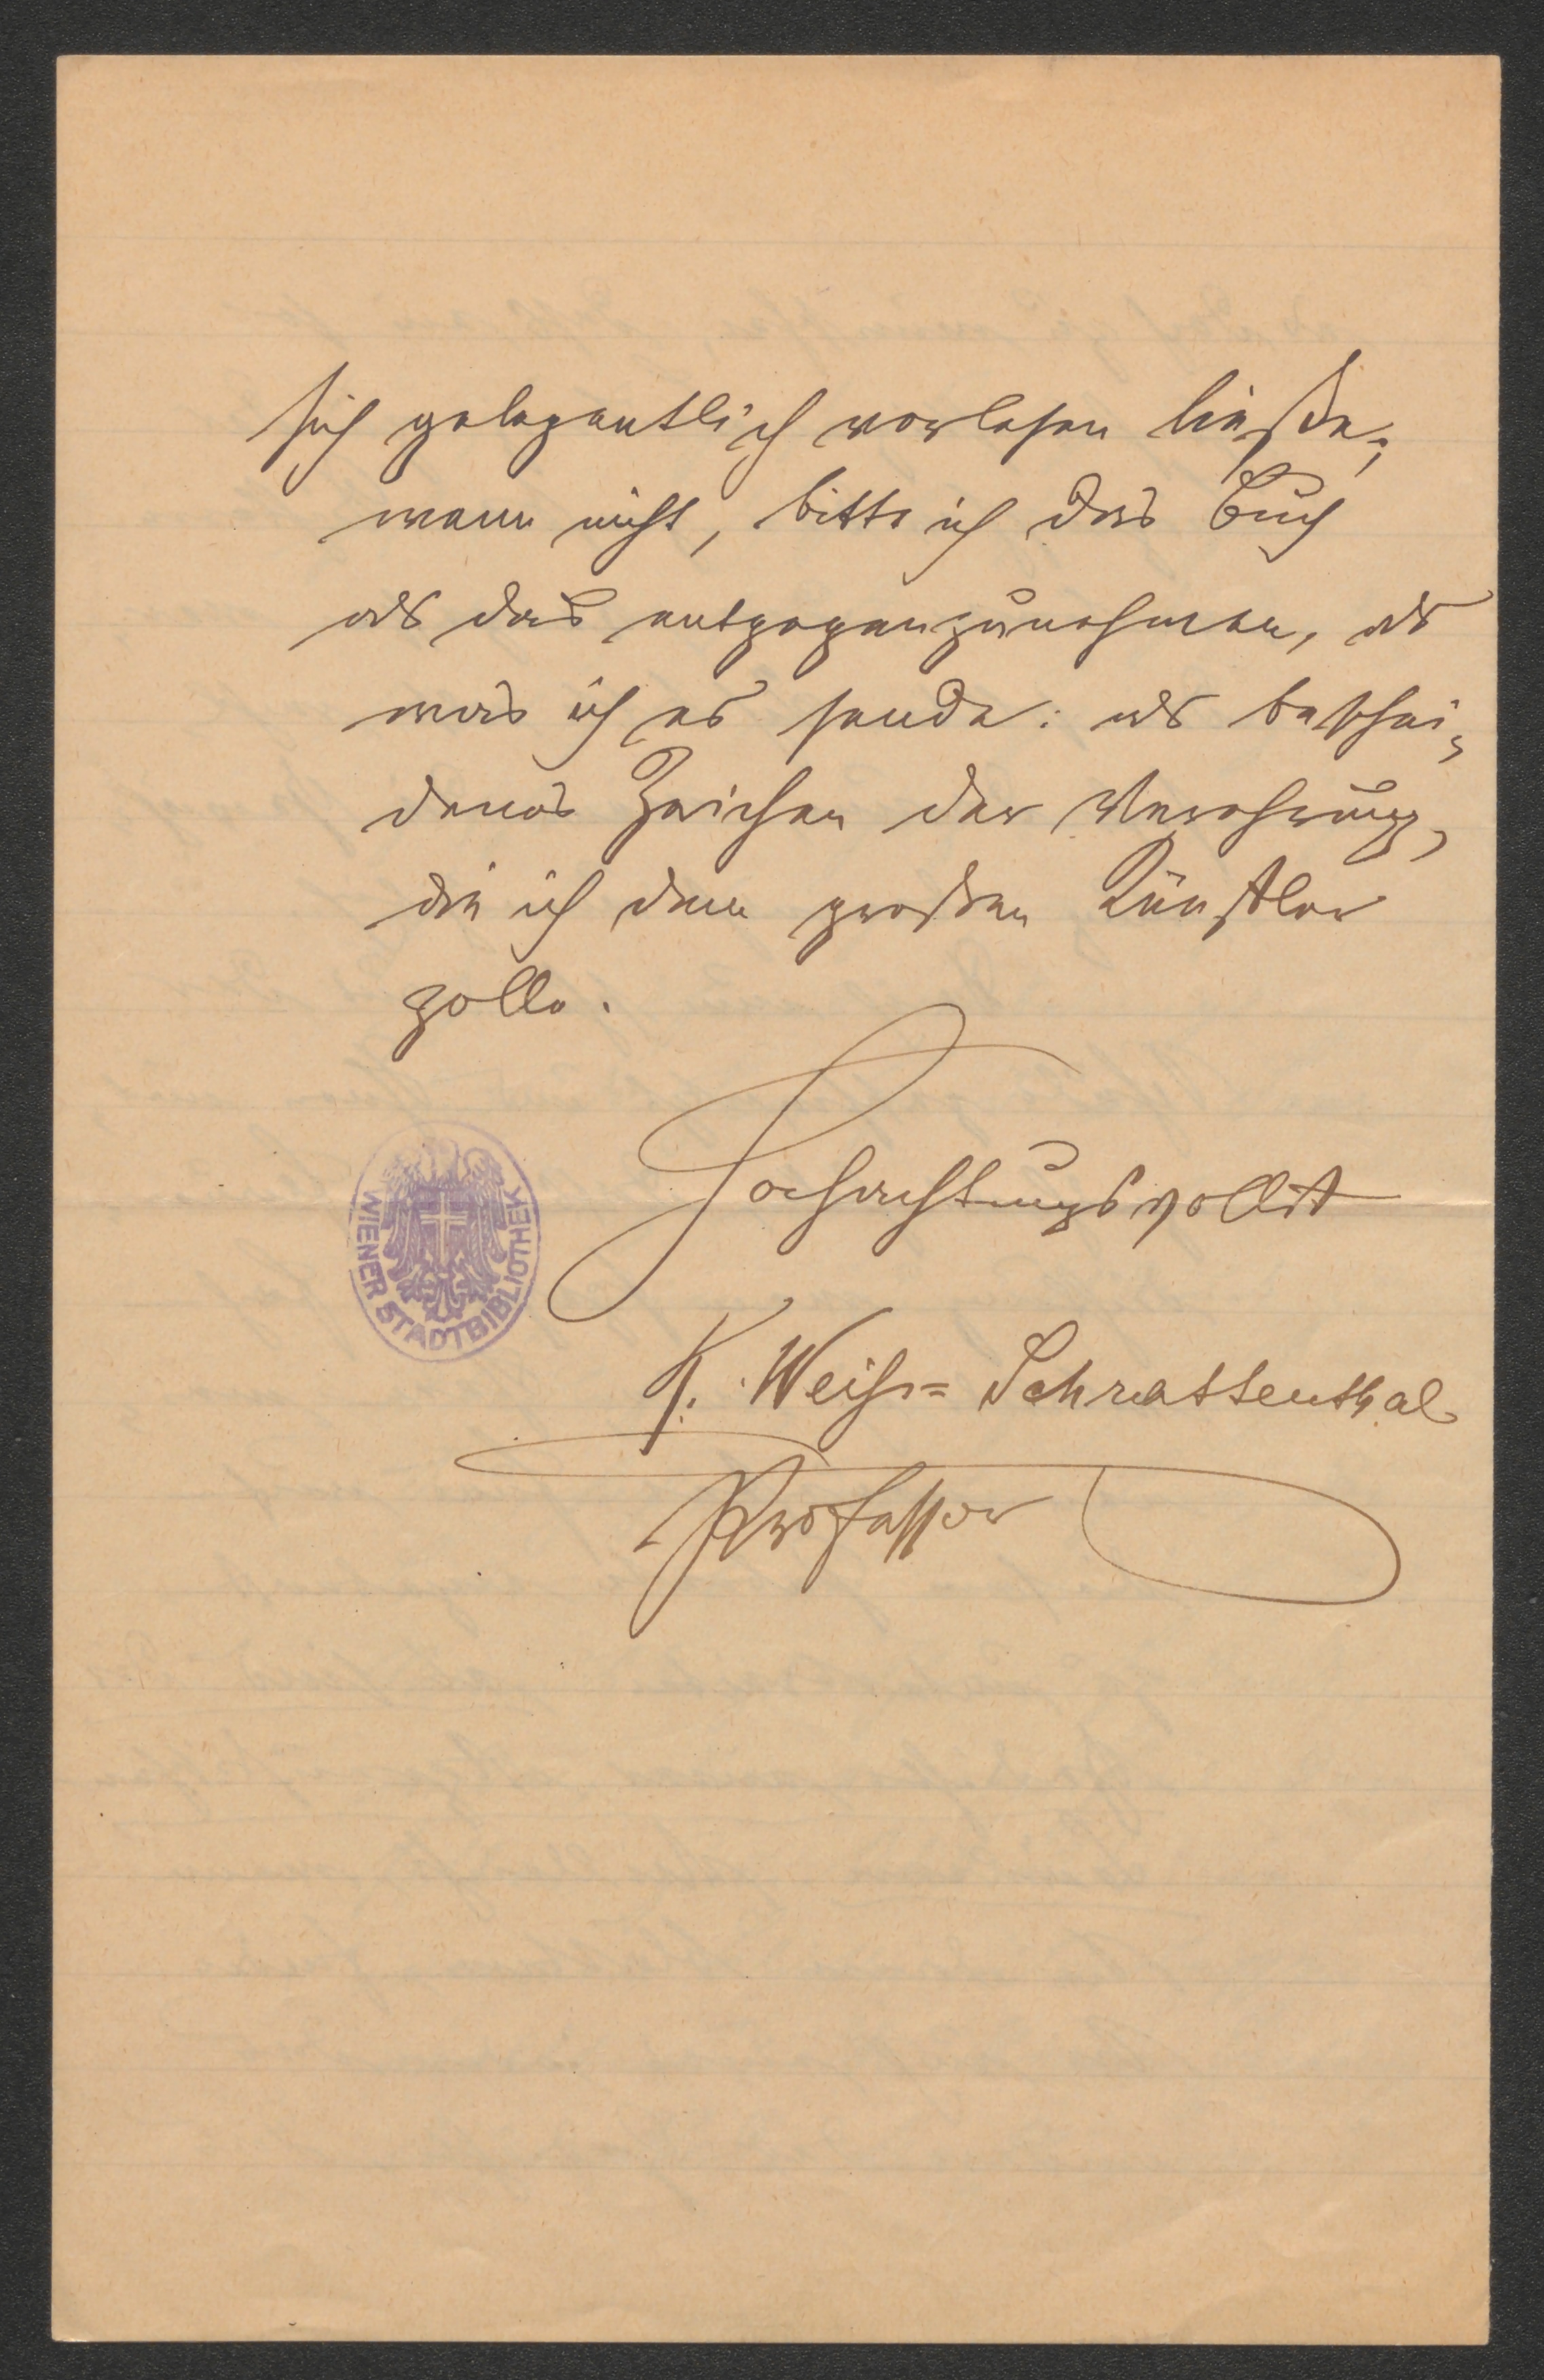 sich gelegentlich vorlesen ließe;
wenn nicht, bitte ich das Buch
als das entgegenzunehmen, als
was ich es sende: als beschei-
denes Zeichen der Verehrung,
die ich dem großen Künstler
zolle.
Hochachtungsvollst
K. Weiss= Schrattenthal
Professor
WIENER STADTBIBLIOTHEK